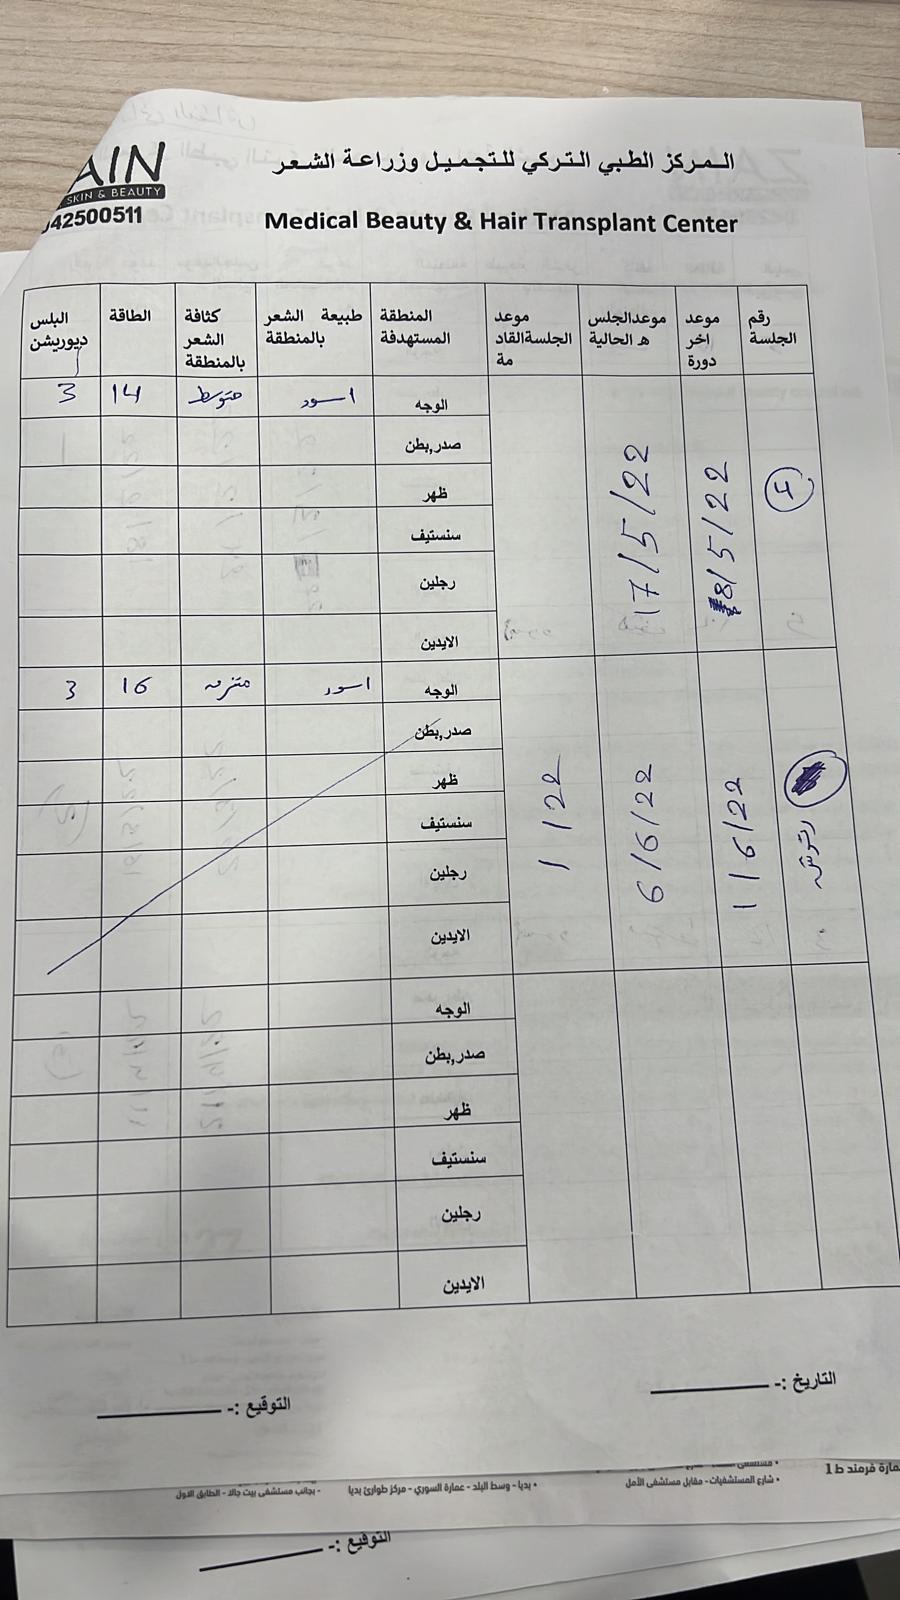 AIN
SKIN & BEAUTY
42500511
المركز الطبي التركي للتجميل وزراعة الشعر
Medical Beauty & Hair Transplant Center
رقم الجلسة
موعد اخر دورة
موعدالجلس ه الحالية
موعد الجلسةالقاد مة
المنطقة المستهدفة
طبيعة الشعر بالمنطقة
كثافة الشعر بالمنطقة
الطاقة
البلس ديوريشن
4
8/5/22
17/5/22
الوجه اسود متوسط 14 3
صدر,بطن
ظهر
سنستيف
رجلين
الايدين
رتوش
1/6/22
6/6/22
/ /22
الوجه اسود 16 3
صدر,بطن
ظهر
سنستيف
رجلين
الايدين
الوجه
صدر,بطن
ظهر
سنستيف
رجلين
الايدين
التاريخ :-
التوقيع :-
عمارة فرمند ط 1
• شارع المستشفيات - مقابل مستشفى الأمل
• بديا - وسط البلد - عمارة السوري - مركز طوارئ بديا
- بجانب مستشفى بيت جالا - الطابق الاول
التوقيع :-